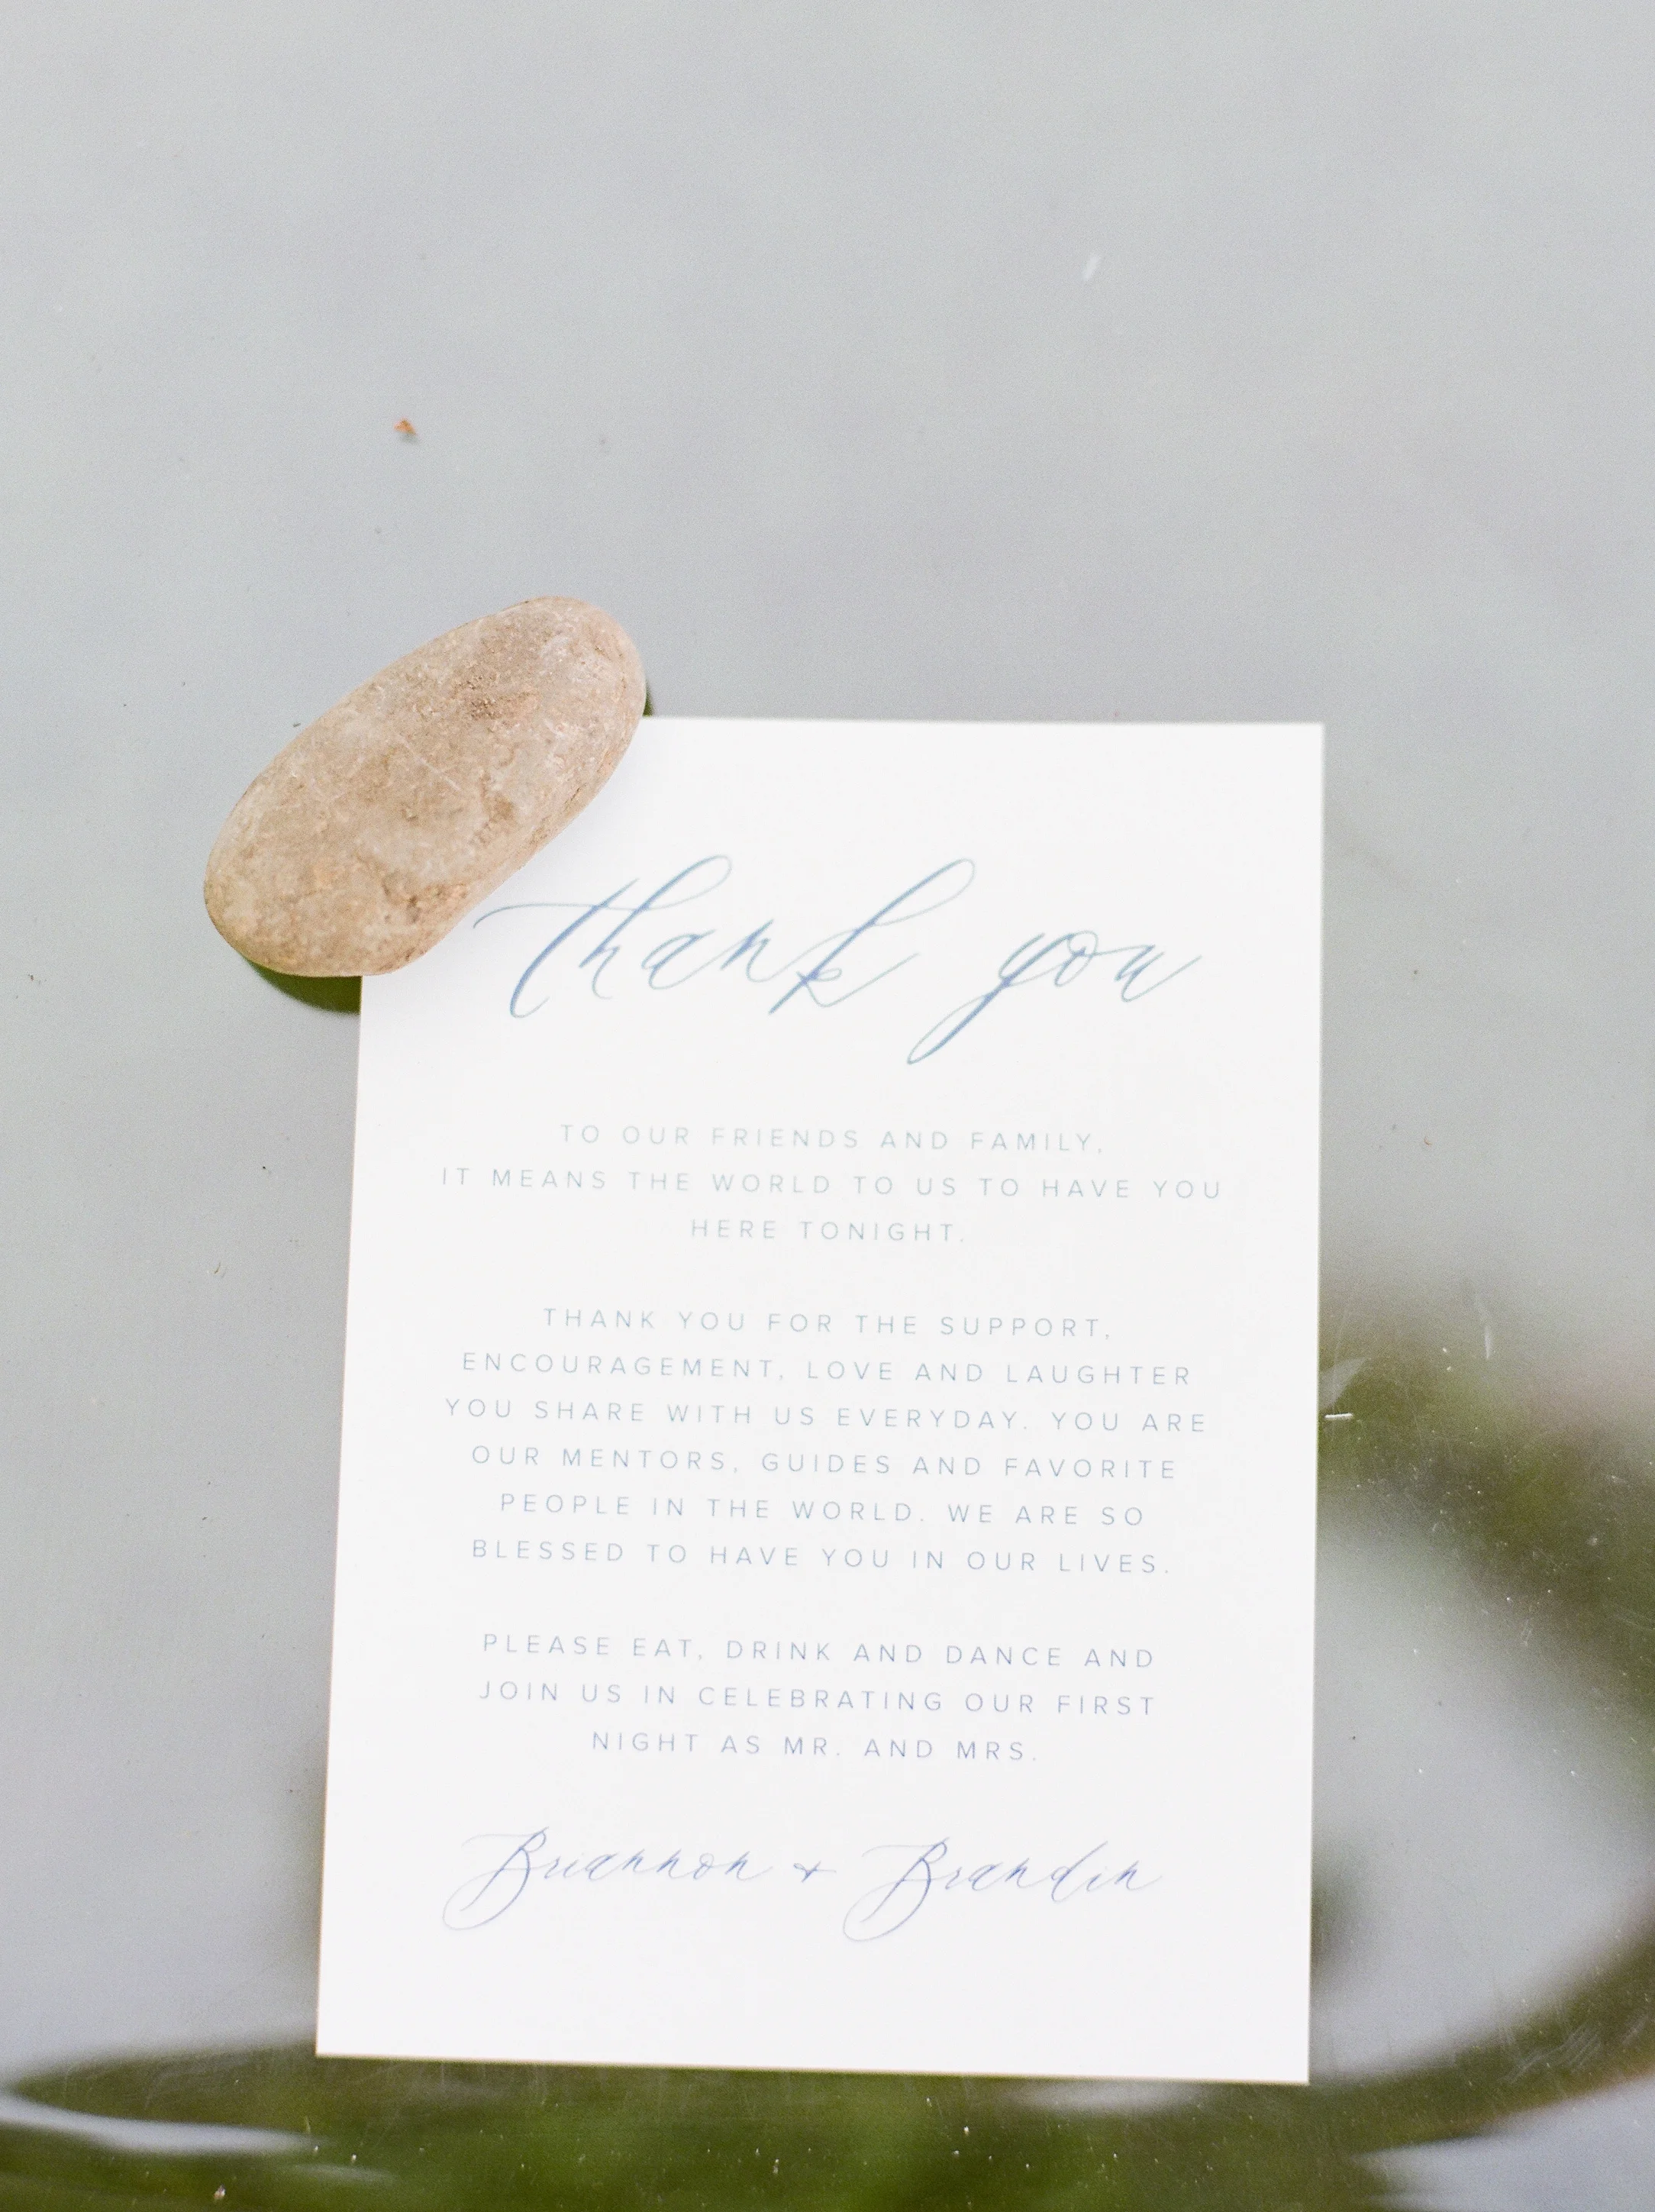 thank you
TO OUR FRIENDS AND FAMILY,
IT MEANS THE WORLD TO US TO HAVE YOU
HERE TONIGHT.
THANK YOU FOR THE SUPPORT,
ENCOURAGEMENT, LOVE AND LAUGHTER
YOU SHARE WITH US EVERYDAY. YOU ARE
OUR MENTORS, GUIDES AND FAVORITE
PEOPLE IN THE WORLD. WE ARE SO
BLESSED TO HAVE YOU IN OUR LIVES.
PLEASE EAT, DRINK AND DANCE AND
JOIN US IN CELEBRATING OUR FIRST
NIGHT AS MR. AND MRS.
Briannon + Brandin